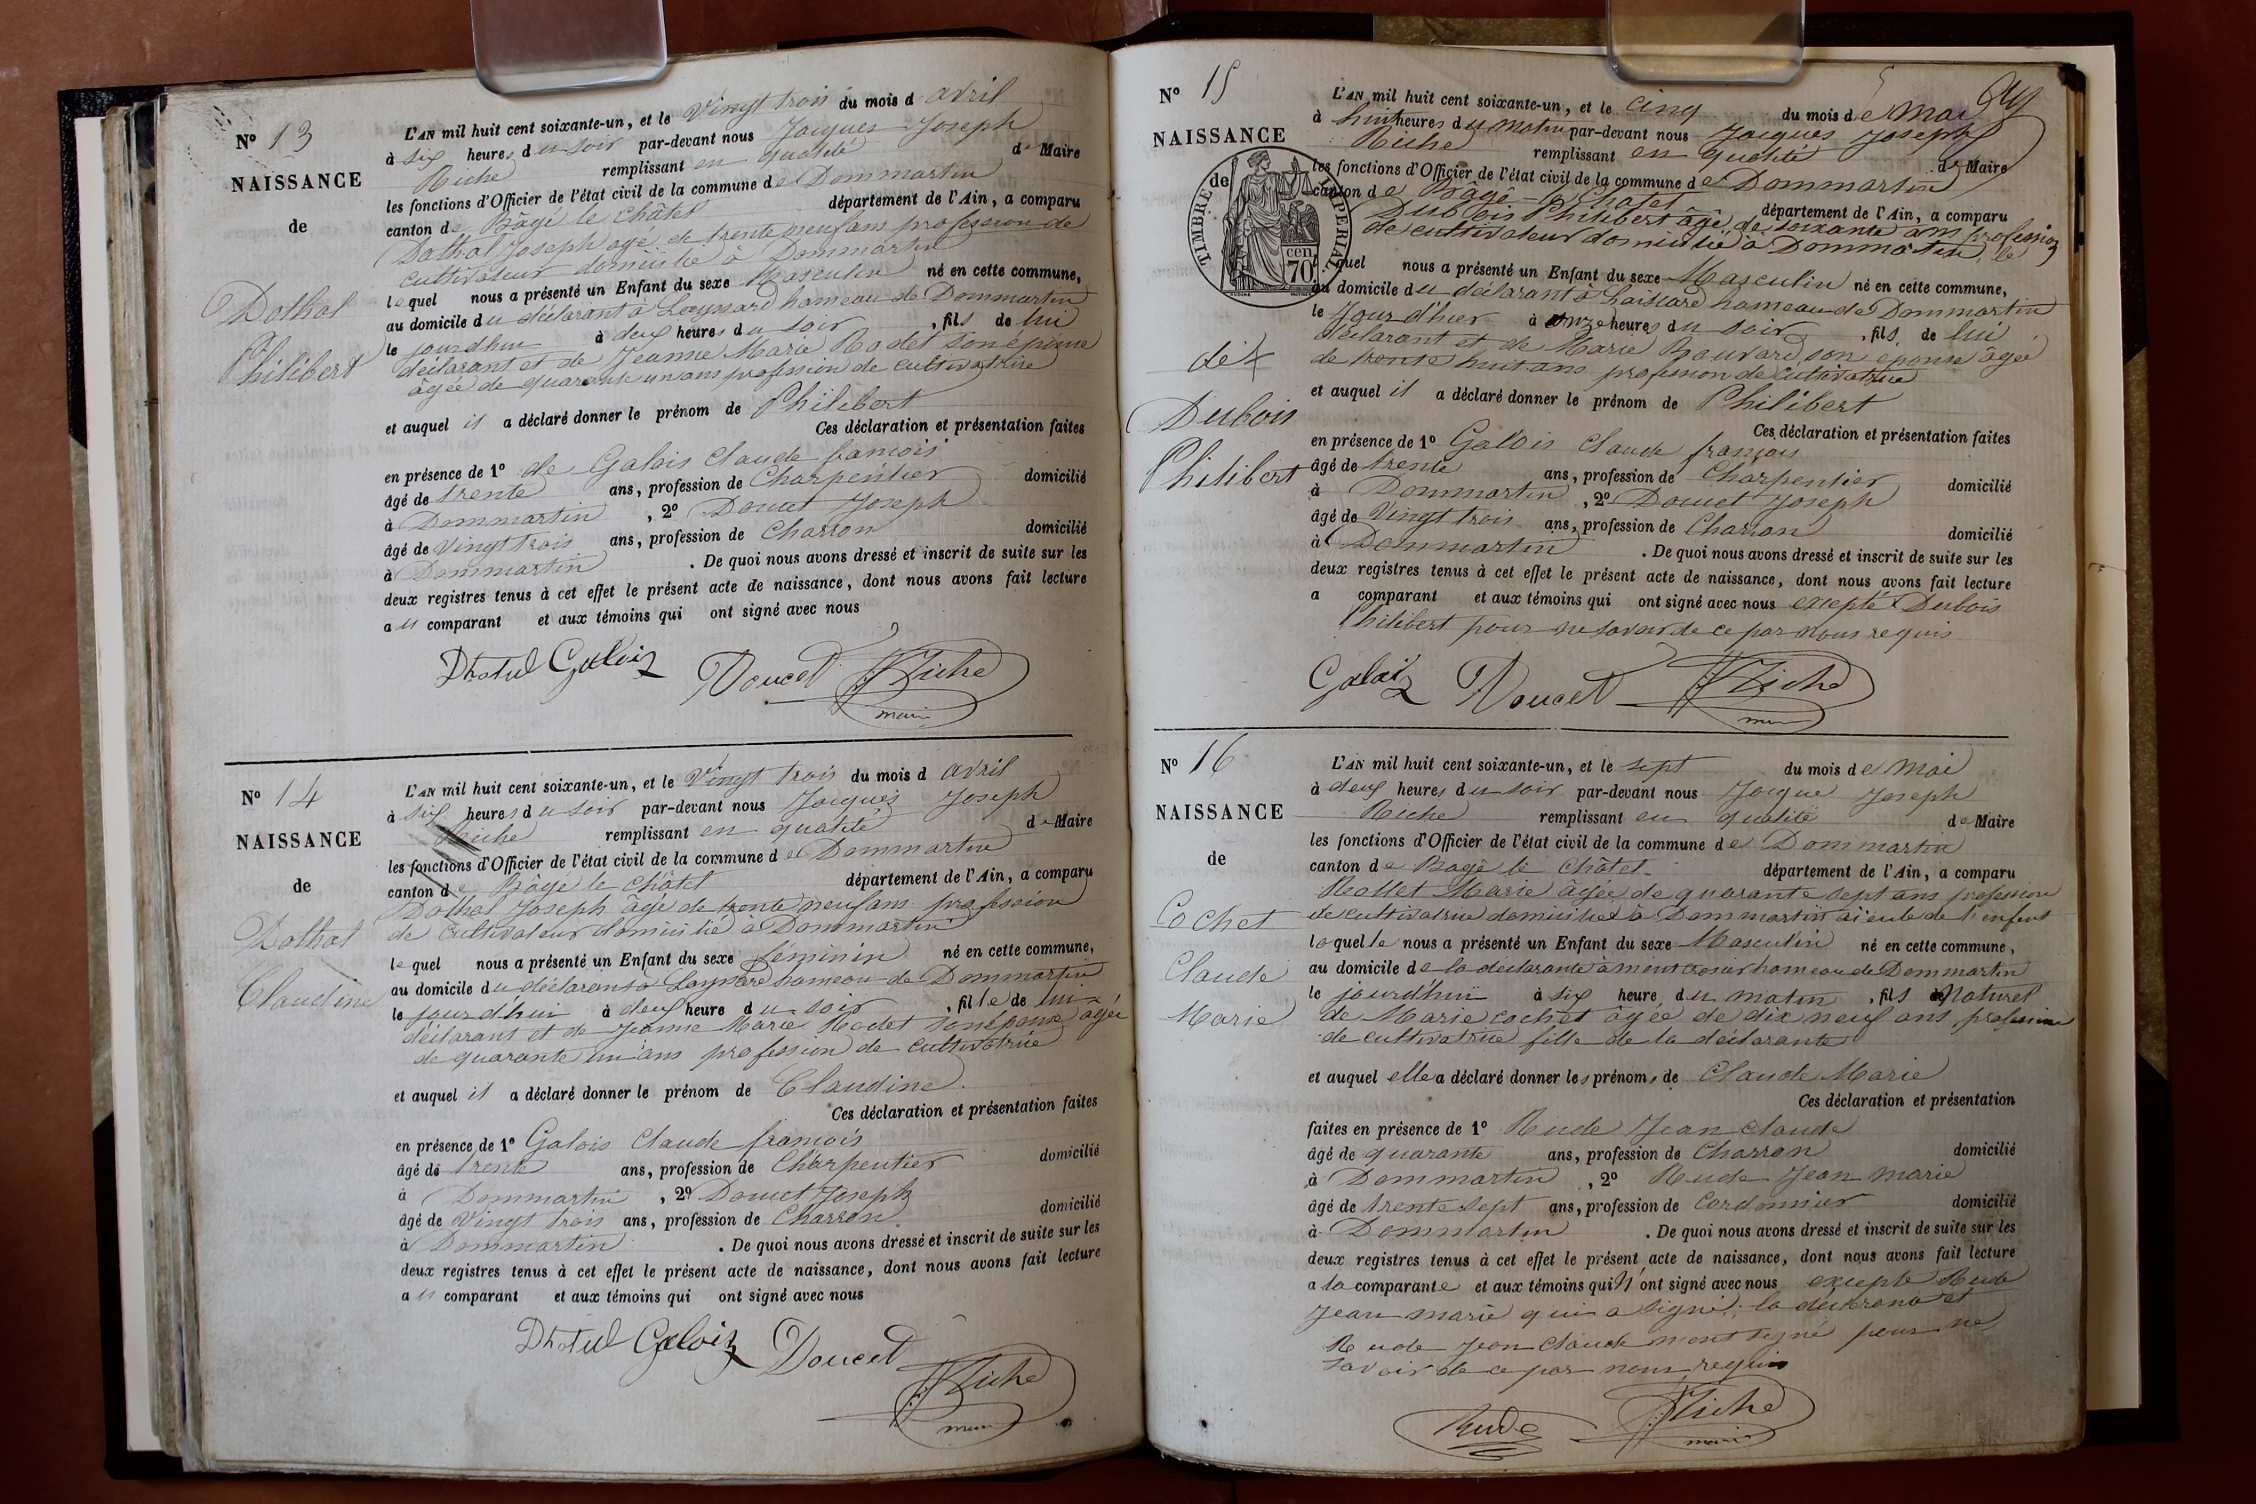 N° 13
NAISSANCE
de
Dothal
Philibert
L'AN mil huit cent soixante-un, et le Vingt trois du mois d avril
à six heures du soir par-devant nous Jacques Joseph
Riche remplissant en qualité de Maire
les fonctions d'Officier de l'état civil de la commune de Dommartin
canton de Bâgé le Châtel département de l'Ain, a comparu
Dothal Joseph agé de trente neuf ans profession de
cultivateur domicilié à Dommartin
lequel nous a présenté un Enfant du sexe Masculin né en cette commune,
au domicile du déclarant à Layssard hameau de Dommartin
le jourd'hui à deux heures du soir, fils de lui
déclarant et de Jeanne Marie Rodet son épouse
âgée de quarante un ans profession de cultivatrice
et auquel il a déclaré donner le prénom de Philibert
Ces déclaration et présentation faites
en présence de 1° de Galois Claude francois
âgé de trente ans, profession de Charpentier domicilié
à Dommartin, 2° Doucet Joseph
âgé de Vingt trois ans, profession de Charron domicilié
à Dommartin. De quoi nous avons dressé et inscrit de suite sur les
deux registres tenus à cet effet le présent acte de naissance, dont nous avons fait lecture
au comparant et aux témoins qui ont signé avec nous
Dhotul Galoiz Doucet Riche
maire
N° 14
NAISSANCE
de
Dothal
Claudine
L'AN mil huit cent soixante-un, et le Vingt trois du mois d avril
à six heures du soir par-devant nous Jacques Joseph
Riche remplissant en qualité de Maire
les fonctions d'Officier de l'état civil de la commune de Dommartin
canton de Bâgé le Châtel département de l'Ain, a comparu
Dothal Joseph âgé de trente neuf ans profession
de cultivateur domicilié à Dommartin
lequel nous a présenté un Enfant du sexe féminin né en cette commune,
au domicile du déclarant à hameau de Dommartin
le jourd'hui à deux heure du soir, fille de lui
déclarant et de Jeanne Marie Rodet son épouse âgée
de quarante un ans profession de cultivatrice
et auquel il a déclaré donner le prénom de Claudine
Ces déclaration et présentation faites
en présence de 1° Galois Claude francois
âgé de trente ans, profession de Charpentier domicilié
à Dommartin, 2° Doucet Joseph
âgé de Vingt trois ans, profession de Charron domicilié
à Dommartin. De quoi nous avons dressé et inscrit de suite sur les
deux registres tenus à cet effet le présent acte de naissance, dont nous avons fait lecture
au comparant et aux témoins qui ont signé avec nous
Dhotul Galoiz Doucet
Riche
maire
N° 15
NAISSANCE
de
TIMBRE IMPERIAL
70 cen
Dubois
Philibert
L'AN mil huit cent soixante-un, et le cinq du mois de mai
à huit heures du matin par-devant nous Jacques Joseph
Riche remplissant en qualité de Maire
les fonctions d'Officier de l'état civil de la commune de Dommartin
canton de Bâgé le Chatel département de l'Ain, a comparu
Dubois Philibert âgé de soixante ans profession
de cultivateur domicilié à Dommartin, le
quel nous a présenté un Enfant du sexe Masculin né en cette commune,
au domicile du déclarant à Laissard hameau de Dommartin
le Jour d'hier à onze heures du soir, fils de lui
déclarant et de Marie Bouvard son epouse âgée
de trente huit ans profession de cultivatrice
et auquel il a déclaré donner le prénom de Philibert
Ces déclaration et présentation faites
en présence de 1° Galois Claude françois
âgé de trente ans, profession de Charpentier domicilié
à Dommartin, 2° Doucet Joseph
âgé de Vingt trois ans, profession de Charron domicilié
à Dommartin. De quoi nous avons dressé et inscrit de suite sur les
deux registres tenus à cet effet le présent acte de naissance, dont nous avons fait lecture
a comparant et aux témoins qui ont signé avec nous excepté Dubois
Philibert pour ne savoir de ce par nous requis
Galoiz Doucet Riche
maire
N° 16
NAISSANCE
de
Cochet
Claude
Marie
L'AN mil huit cent soixante-un, et le sept du mois de mai
à deux heures du soir par-devant nous Jacque Joseph
Riche remplissant en qualité de Maire
les fonctions d'Officier de l'état civil de la commune de Dommartin
canton de Bagé le Châtel département de l'Ain, a comparu
Marie âgée de quarante sept ans profession
de cultivatrice domiciliée à Dommartin aïeule de l'enfant
laquelle nous a présenté un Enfant du sexe Masculin né en cette commune,
au domicile de la déclarante à hameau de Dommartin
le jourd'hui à six heure du matin, fils Naturel
de Marie cochet agée de dix neuf ans profession
de cultivatrice fille de la déclarante
et auquel elle a déclaré donner les prénoms de Claude Marie
Ces déclaration et présentation
faites en présence de 1° Rude Jean Claude
âgé de quarante ans, profession de Charron domicilié
à Dommartin, 2° Rude Jean marie
âgé de trente sept ans, profession de Cordonnier domicilié
à Dommartin. De quoi nous avons dressé et inscrit de suite sur les
deux registres tenus à cet effet le présent acte de naissance, dont nous avons fait lecture
a la comparante et aux témoins qui n'ont signé avec nous excepté Rude
Jean marie qui a signé, la déclarante et
Rude Jean Claude n'ont signé pour ne
savoir de ce par nous requis
Rude Riche
maire